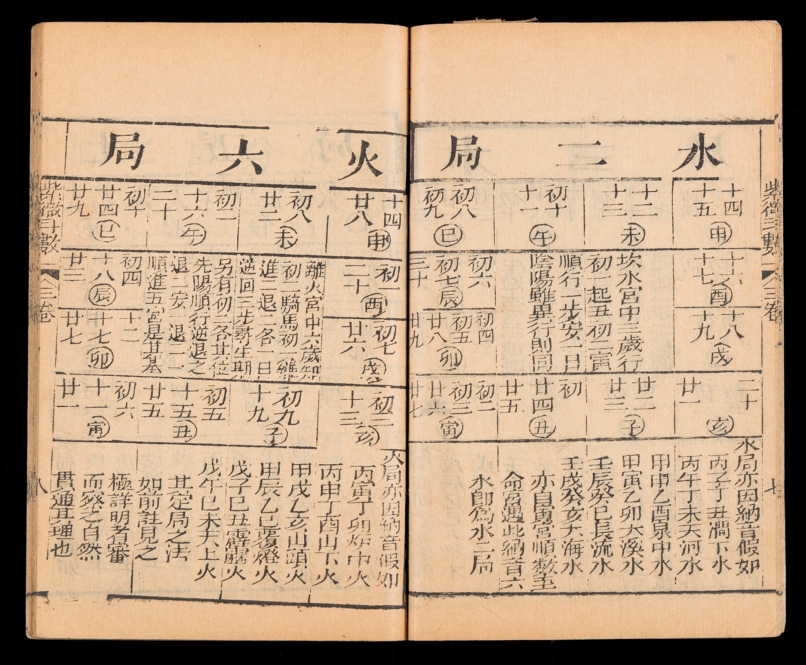 水二局
初八
初九
巳
十一
午
十二
十三
未
十四
十五
申
十六
十七
酉
十八
十九
戌
初六
初七
三十
辰
初四
初五
廿八
廿九
卯
坎水宮中三歲行
初一起丑初二寅
順行一步安二日
陰陽雖異行則同
初二
初三
廿六
廿七
寅
初一
廿四
廿五
丑
廿二
廿三
子
二十
廿一
亥
水局亦因納音假如
丙子丁丑澗下水
丙午丁未天河水
甲申乙酉泉中水
甲寅乙卯大溪水
壬辰癸巳長流水
壬戌癸亥大海水
亦自寅宮順數至
命宮遇此納音六
水即為水二局
紫微斗數
三卷
七
火六局
初十
廿四
廿九
巳
初二
十六
二十
午
初八
廿二
未
十四
廿八
申
初一
二十
酉
初七
廿六
戌
初四
十八
廿三
辰
十二
十七
廿七
卯
離火宮中六歲知
初二騎馬初一雞
進三退二各一日
逆回三步尋生期
另有初二各其位
先陽順行逆退之
退二安一退二二
順進五宮是其基
初六
十一
廿一
寅
初五
十五
廿五
丑
初九
十九
子
初三
十三
亥
火局亦因納音假如
丙寅丁卯炉中火
丙申丁酉山下火
甲戌乙亥山頭火
甲辰乙巳覆燈火
戊子己丑霹靂火
戊午己未天上火
其定局之法
如前註見之
極詳明者審
而察之自然
貫通其理也
紫微斗數
三卷
八